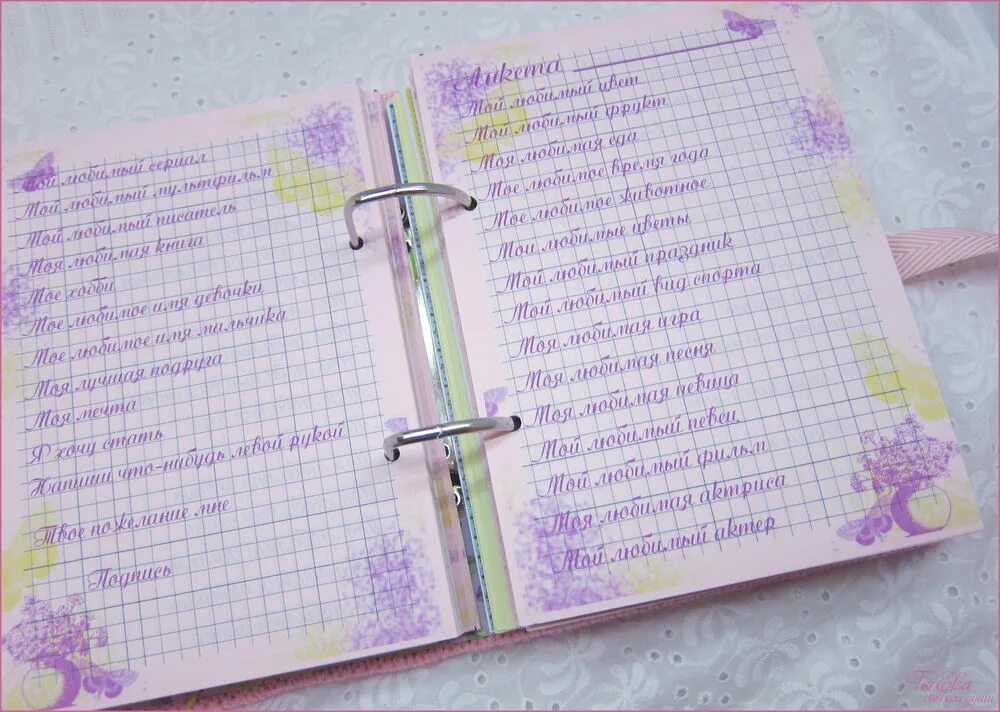 Мой любимый сериал
Мой любимый мультфильм
Мой любимый писатель
Моя любимая книга
Мое хобби
Мое любимое имя девочки
Мое любимое имя мальчика
Моя лучшая подруга
Моя мечта
Я хочу стать
Напиши что-нибудь левой рукой
Твое пожелание мне
Подпись
Анкета
Мой любимый цвет
Мой любимый фрукт
Моя любимая еда
Мое любимое время года
Мое любимое животное
Мои любимые цветы
Мой любимый праздник
Мой любимый вид спорта
Моя любимая игра
Моя любимая песня
Моя любимая певица
Мой любимый певец
Мой любимый фильм
Моя любимая актриса
Мой любимый актер